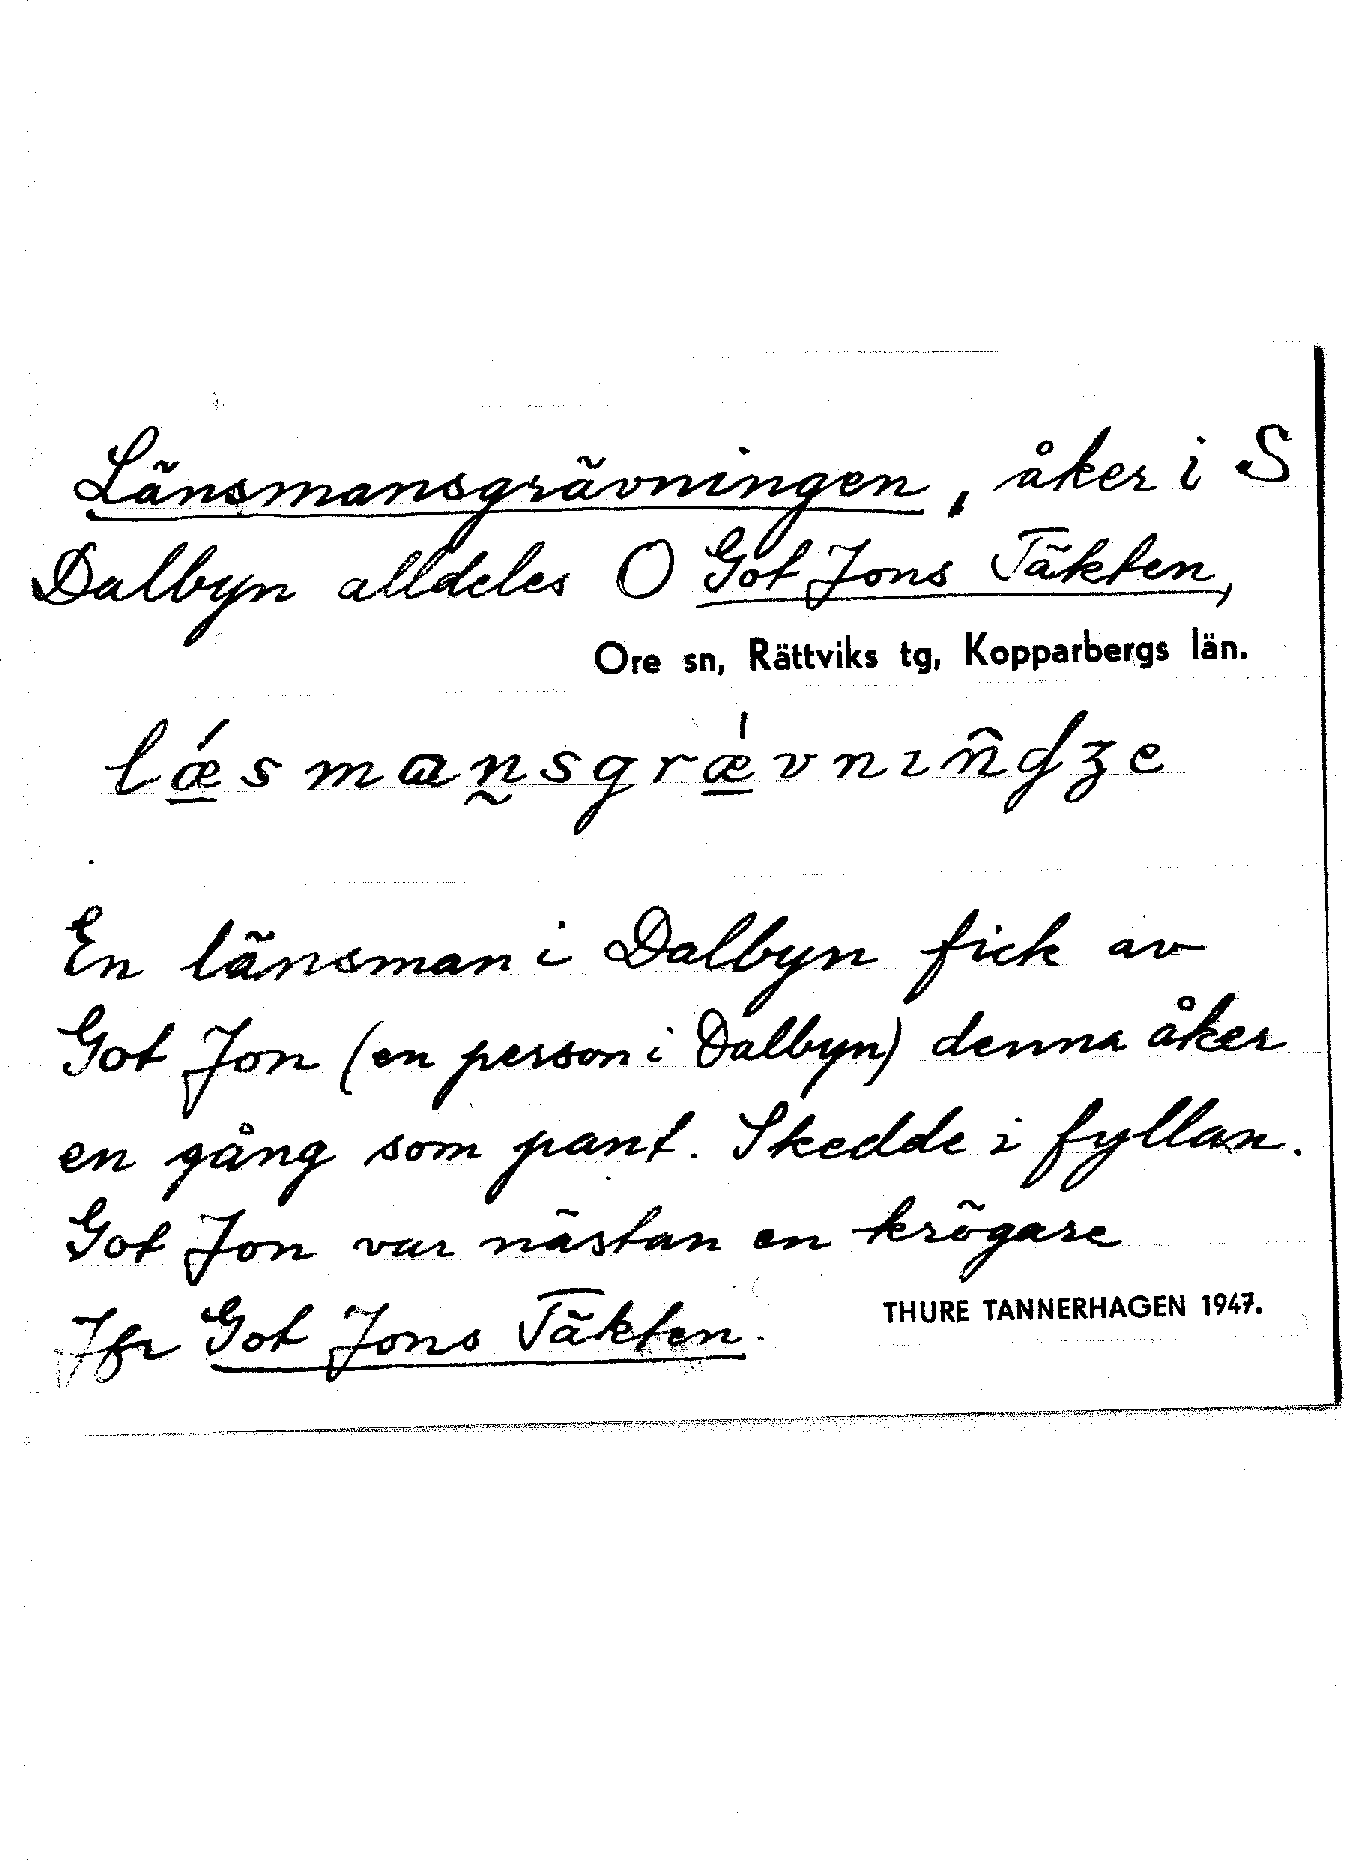 Länsmansgrävningen, åker i S
Dalbyn alldeles O Got Jons Täkten,
Ore sn, Rättviks tg, Kopparbergs län.
lǽ̲smaṉ̰sgrǽ̲vnın̂ʤe
En länsman i Dalbyn fick av
Got Jon (en person i Dalbyn) denna åker
en gång som pant. Skedde i fyllan.
Got Jon var nästan en krögare
Jfr Got Jons Täkten.
THURE TANNERHAGEN 1947.